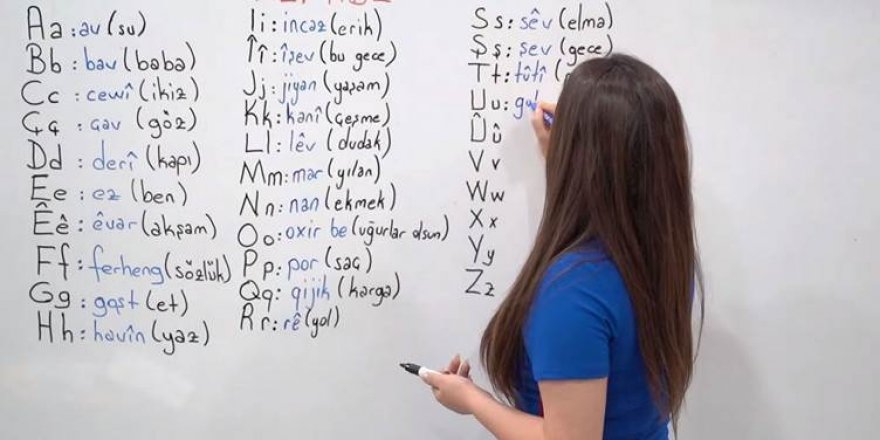 Aa : av (su)
Bb : bav (baba)
Cc : cewî (ikiz)
Çç : çav (göz)
Dd : derî (kapı)
Ee : ez (ben)
Êê : êvar (akşam)
Ff : ferheng (sözlük)
Gg : goşt (et)
Hh : havîn (yaz)
Ii : incaz (erik)
Îî : îşev (bu gece)
Jj : jiyan (yaşam)
Kk : kanî (çeşme)
Ll : lêv (dudak)
Mm : mar (yılan)
Nn : nan (ekmek)
Oo : oxir be (uğurlar olsun)
Pp : por (saç)
Qq : qijik (karga)
Rr : rê (yol)
Ss : sêv (elma)
Şş : şev (gece)
Tt : tûtî (
Uu :
Ûû
Vv
Ww
Xx
Yy
Zz